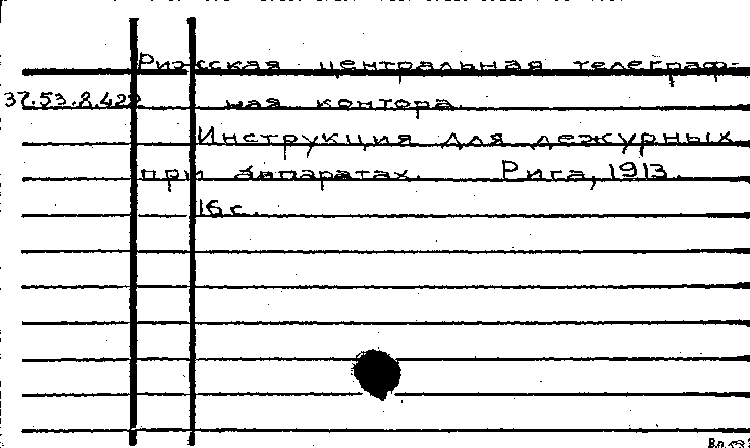 Рижская центральная телеграф-
37.53.8.422 ная контора
Инструкция для дежурных
при аппаратах. Рига, 1913.
16 с.